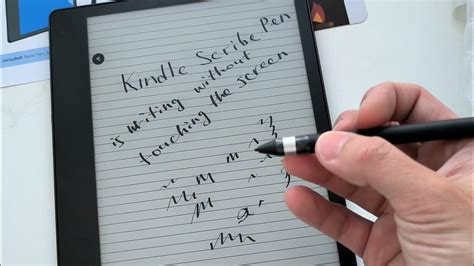 Kindle Scribe Pen
is writing without
touching the screen